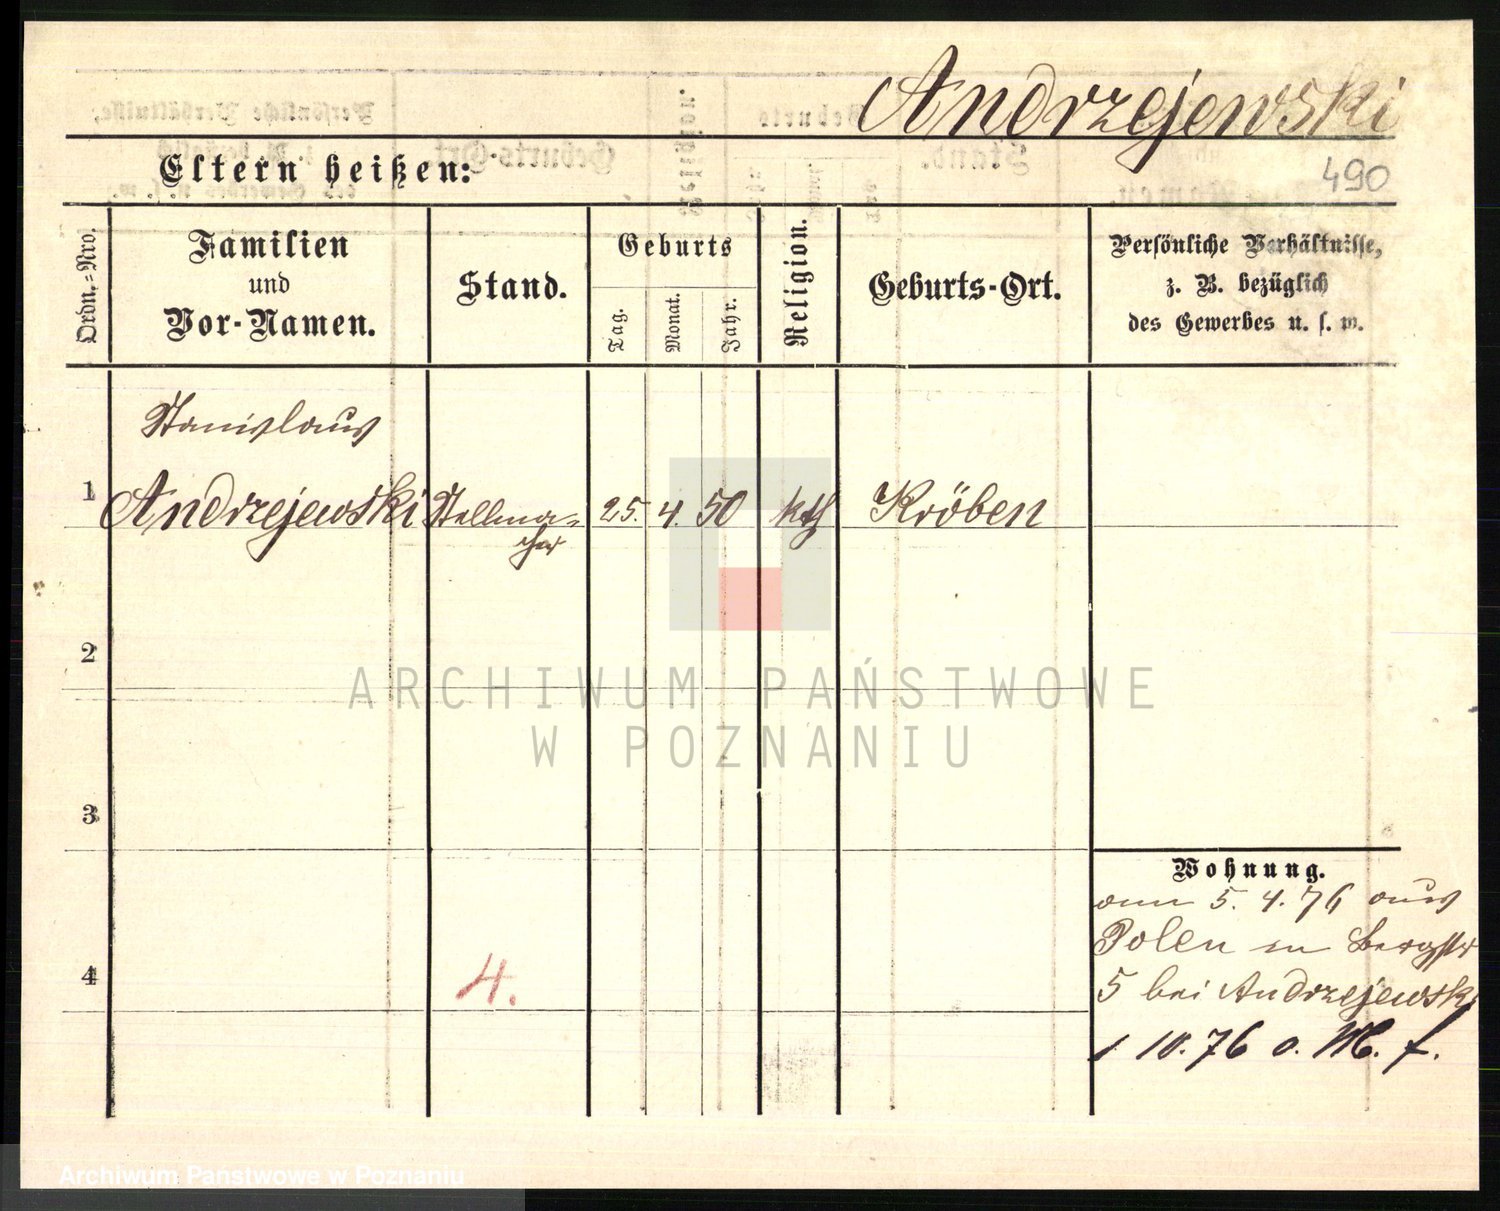 Andrzejewski
490
Eltern heißen:
Ordn.-Nro.
Familien
und
Vor-Namen.
Stand.
Geburts
Tag.
Monat.
Jahr.
Religion.
Geburts-Ort.
Persönliche Verhältnisse,
z. B. bezüglich
des Gewerbes u. s. w.
Stanislaus
1 Andrzejewski Stellma- 25. 4. 50 kth Kröben
cher
2
ARCHIWUM PAŃSTWOWE
W POZNANIU
3
Wohnung.
am 5. 4. 76 aus
Polen in Bergstr
5 bei Andrzejewski
4 4.
1 10. 76 o. M. f.
Archiwum Panstwowe w Poznaniu